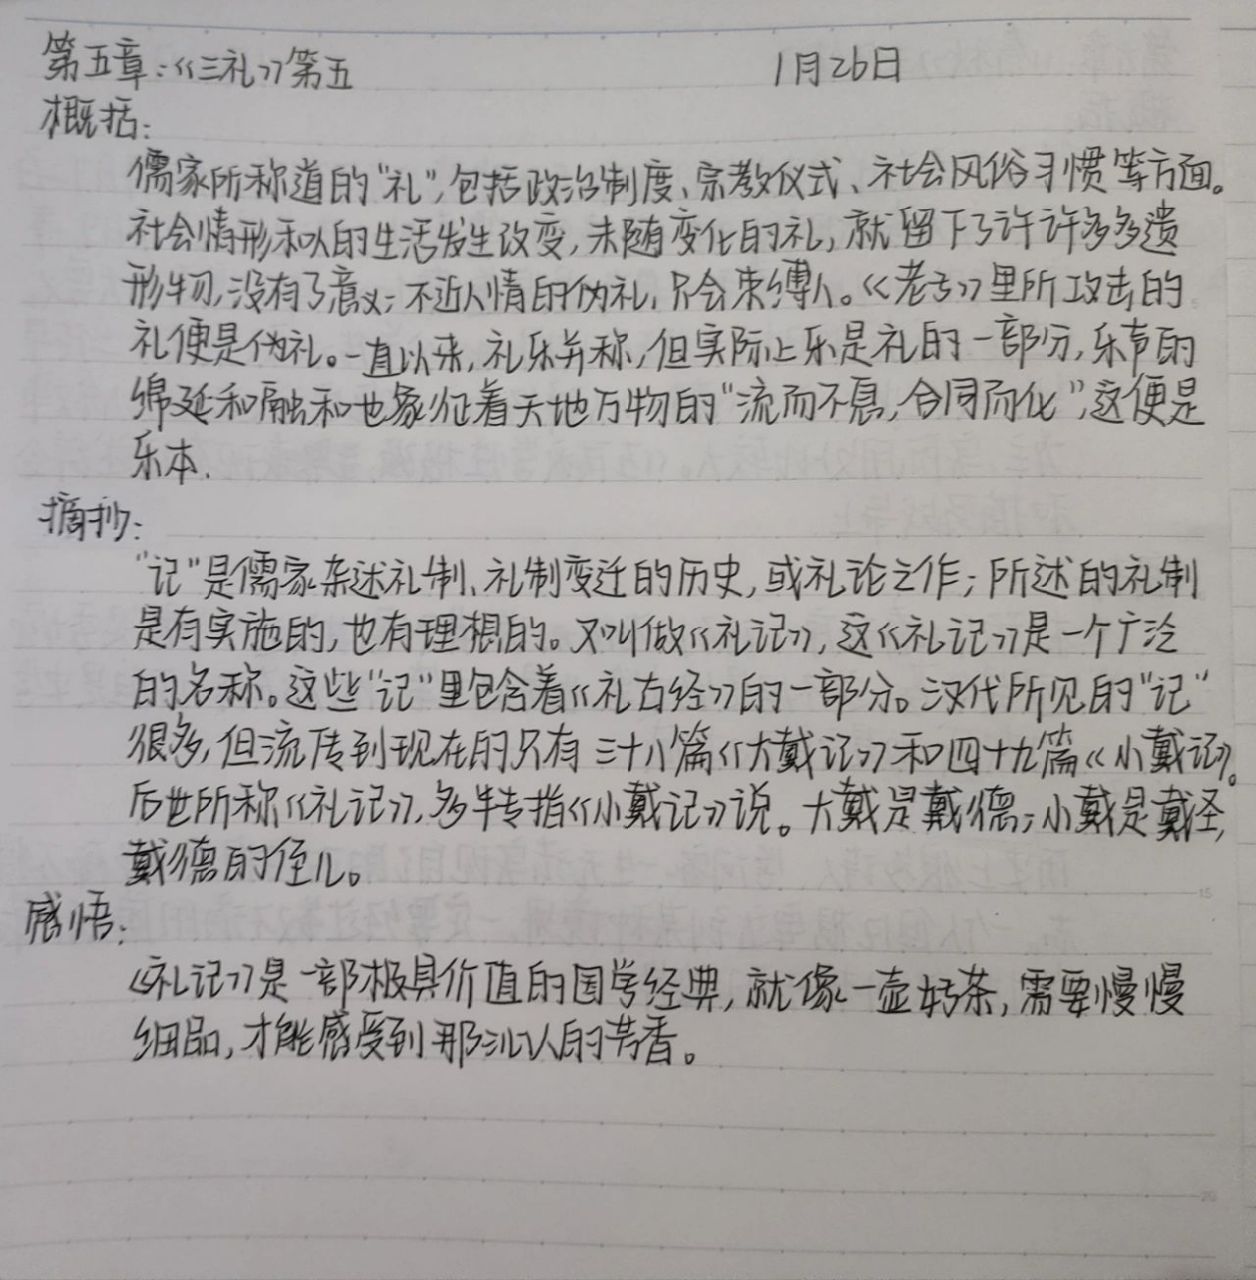 第五章：《三礼》第五 1月26日
概括：
儒家所称道的“礼”，包括政治制度、宗教仪式、社会风俗习惯等方面。
社会情形和人的生活发生改变，未随变化的礼，就留下了许许多多遗
形物，没有了意义；不近人情的伪礼，只会束缚人。《老子》里所攻击的
礼便是伪礼。一直以来，礼乐并称，但实际上乐是礼的一部分，乐声的
绵延和融和也象征着天地万物的“流而不息，合同而化”，这便是
乐本.
摘抄：
“记”是儒家杂述礼制、礼制变迁的历史，或礼论之作；所述的礼制
是有实施的，也有理想的。又叫做《礼记》，这《礼记》是一个广泛
的名称。这些“记”里包含着《礼古经》的一部分。汉代所见的“记”
很多，但流传到现在的只有三十八篇《大戴记》和四十九篇《小戴记》。
后世所称《礼记》，多半专指《小戴记》说。大戴是戴德；小戴是戴圣，
戴德的侄儿。
感悟：
《礼记》是一部极具价值的国学经典，就像一壶好茶，需要慢慢
细品，才能感受到那沁人的芳香。